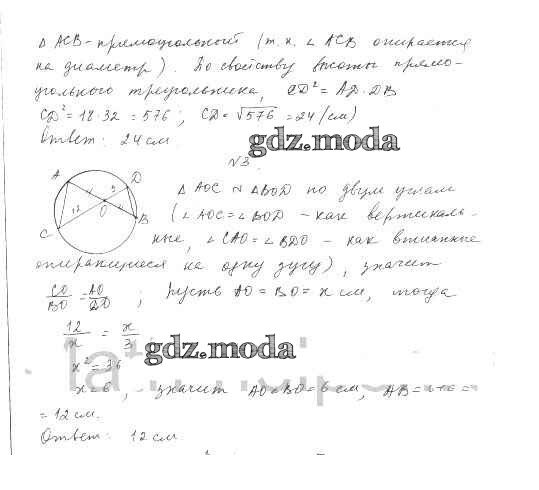 Δ ACB - прямоугольный (т.к. ∠ ACB опирается
на диаметр). По свойству высоты прямо-
угольного треугольника, CD² = AD·DB
CD² = 18·32 = 576; CD = √576 = 24 (см)
Ответ: 24 см.
gdz.moda
№3.
A x 3 D
O x
12 B
C
Δ AOC ∾ ΔBOD по двум углам
(∠AOC = ∠BOD - как вертикаль-
ные, ∠CAO = ∠BDO - как вписанные
опирающиеся на одну дугу), значит
CO/BO = AO/DO ; Пусть AO = BO = x см, тогда
12/x = x/3
gdz.moda
x² = 36
x = 6, - значит AO = BO = 6 см, AB =
= 12 см.
Ответ: 12 см